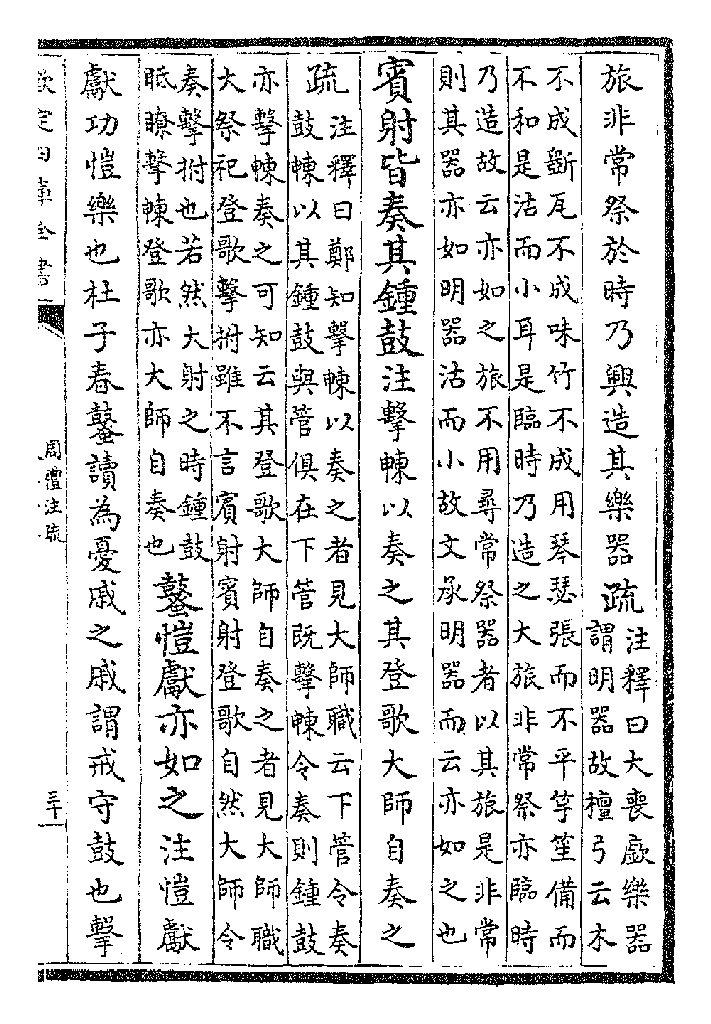 旅非常祭於時乃興造其樂器疏
注釋曰大喪廞樂器
謂明器故檀弓云木
不成斲瓦不成味竹不成用琴瑟張而不平竽笙備而
不和是沽而小耳是臨時乃造之大旅非常祭亦臨時
乃造故云亦如之旅不用尋常祭器者以其旅是非常
則其器亦如明器沽而小故文承明器而云亦如之也
賓射皆奏其鍾鼓注擊朄以奏之其登歌大師自奏之
疏
注釋曰鄭知擊朄以奏之者見大師職云下管令奏
鼓朄以其鍾鼓與管俱在下管既擊朄令奏則鍾鼓
亦擊朄奏之可知云其登歌大師自奏之者見大師職
大祭祀登歌擊拊雖不言賓射賓射登歌自然大師令
奏擊拊也若然大射之時鍾鼓
眡瞭擊朄登歌亦大師自奏也
鼜愷獻亦如之注愷獻
獻功愷樂也杜子春鼜讀為憂戚之戚謂戒守鼓也擊
欽定四庫全書
周禮注疏
三十